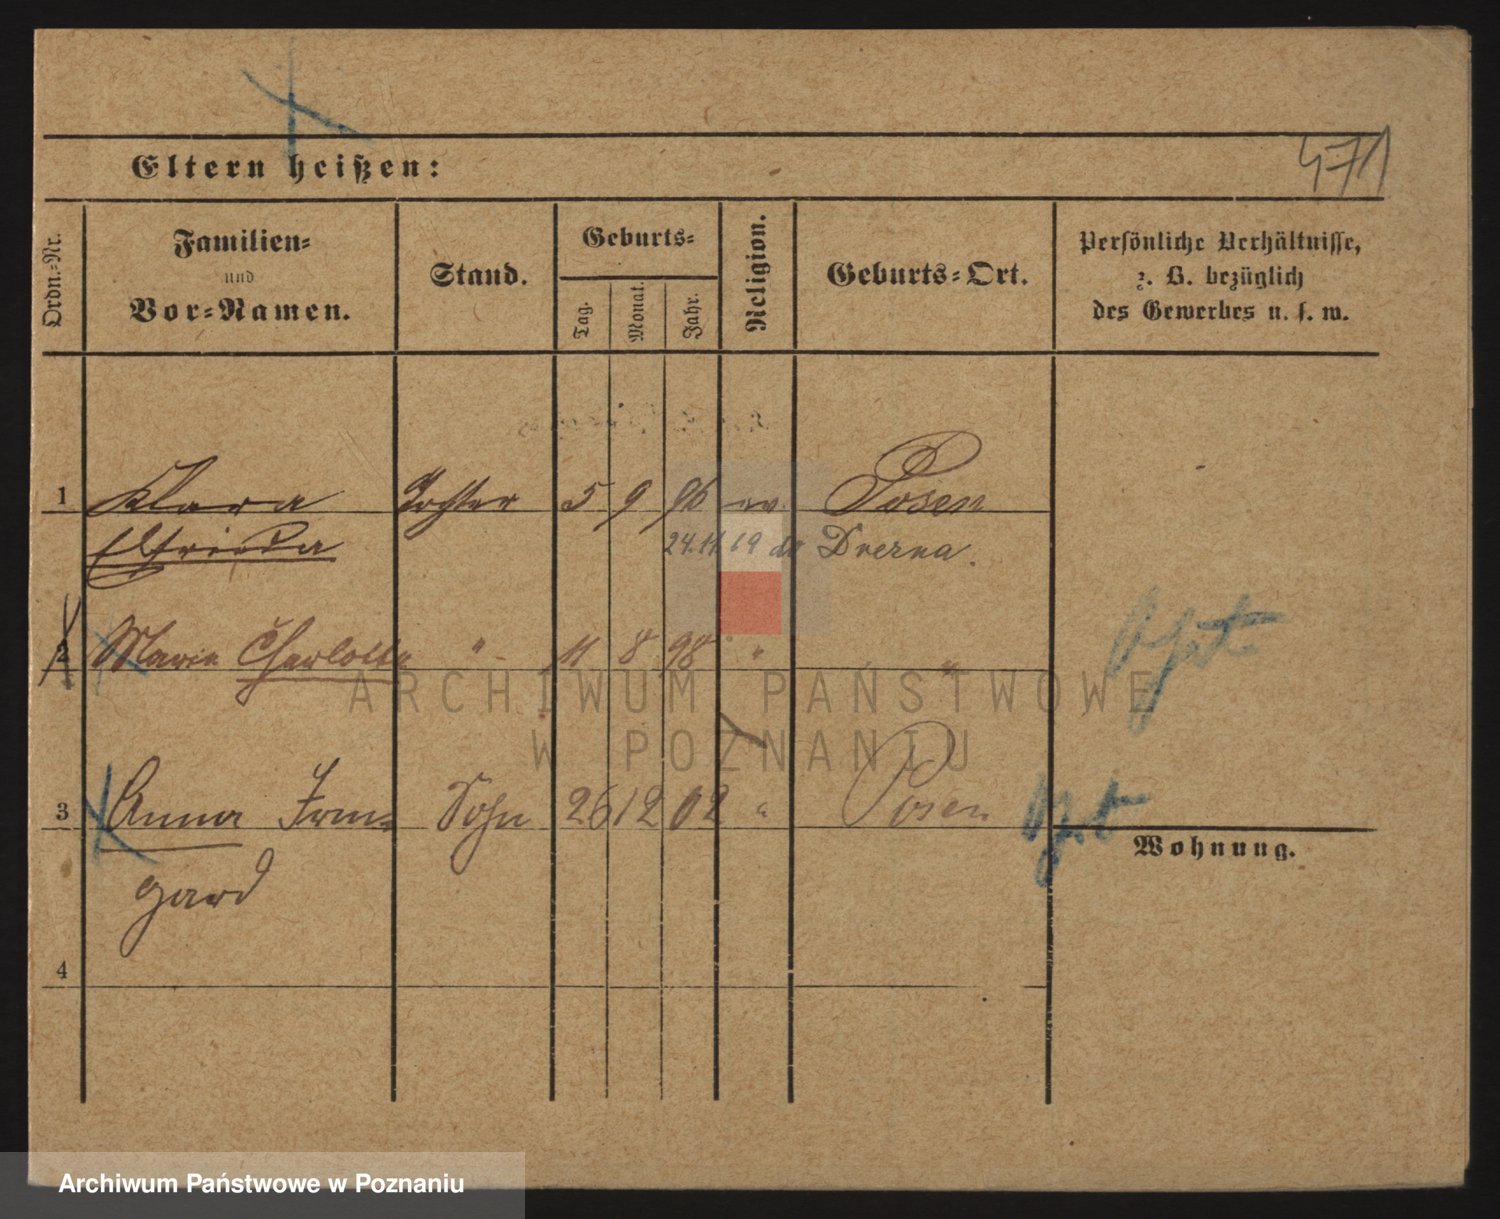 471
Eltern heißen:
Ordn.-Nr.
Familien-
und
Vor-Namen.
Stand.
Geburts-
Tag.
Monat.
Jahr.
Religion.
Geburts-Ort.
Persönliche Verhältnisse,
z. B. bezüglich
des Gewerbes u. s. w.
1 Klara Tochter 5 9 96 ev. Posen
Elfrieda 24.11.19
2 Marie Charlotte " 11 8 98 " "
ARCHIWUM PAŃSTWOWE
W POZNANIU
3 Anna Irm- Sohn 26 12 02 " Posen
gard
Wohnung.
4
Archiwum Państwowe w Poznaniu